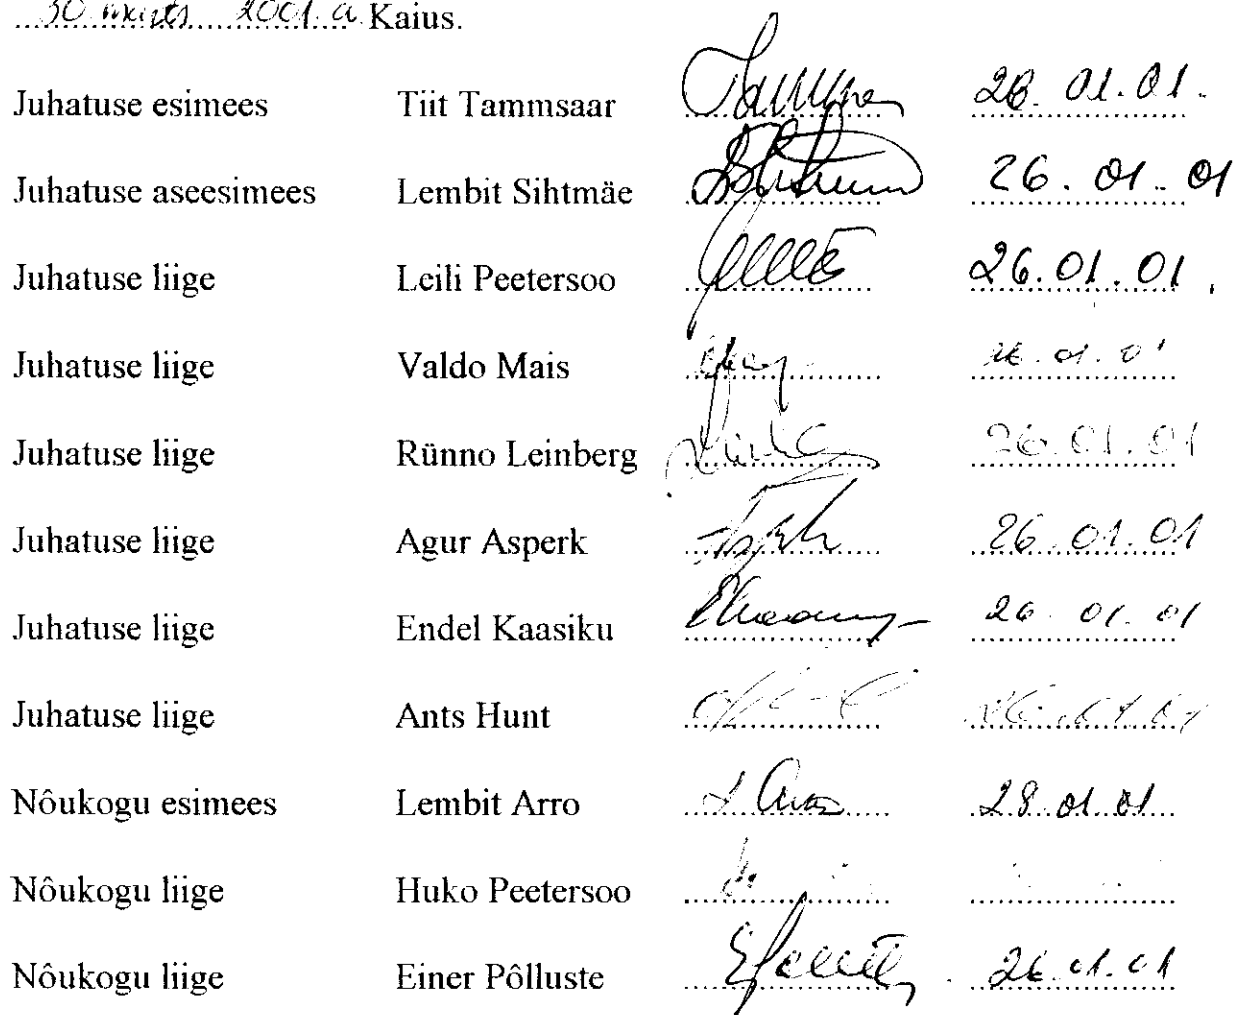 30 märts 2001. a Kaius.
Juhatuse esimees Tiit Tammsaar 28. 01. 01.
Juhatuse aseesimees Lembit Sihtmäe 26. 01. 01
Juhatuse liige Leili Peetersoo 26.01.01.
Juhatuse liige Valdo Mais 26.01.01
Juhatuse liige Rünno Leinberg 26.01.01
Juhatuse liige Agur Asperk 26.01.01
Juhatuse liige Endel Kaasiku 26.01.01
Juhatuse liige Ants Hunt 26.01.01
Nôukogu esimees Lembit Arro L Arro 28.01.01
Nôukogu liige Huko Peetersoo
Nôukogu liige Einer Pôlluste 26.01.01